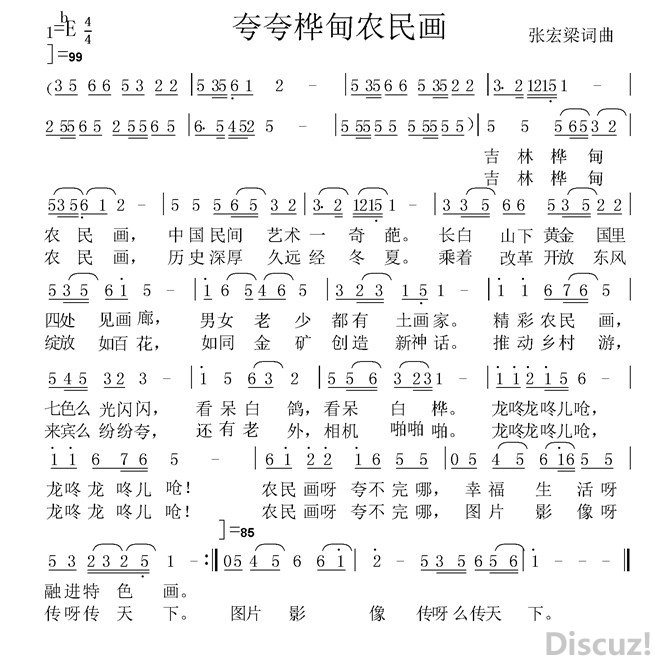 夸夸桦甸农民画
张宏梁词曲
1=ᵇE 4/4
♩=99
(3 5 6 6 5 3 2 2 | 5 35 6 1 2 - | 5 35 6 6 5 6 5 35 2 2 | 3. 2 1215 1 - |
2 55 6 5 2 55 6 5 | 6. 5 4 5 2 5 - | 5 555 5 555 5 555 5 55) | 5 5 5 65 3 2 |
吉 林 桦 甸
吉 林 桦 甸
5356 1 2 - | 5 5 5 6 5 3 2 | 3. 2 1215 1 - | 3 3 5 6 6 5 3 2 |
农 民 画, 中国民间 艺术一 奇 葩。 长白 山下 黄金 国里
农 民 画, 历史深厚 久远经 冬 夏。 乘着 改革 开放 东风
5 3 5 6 1 5 - | 1 6 5 4 6 5 | 3 2 3 1 5 1 - | 1 1 6 7 6 5 |
四处 见画廊, 男女老少都有 土画家。 精彩农民 画,
绽放 如百花, 如同金矿创造 新神话。 推动乡村 游,
5 4 5 3 2 3 - | 1 5 6 3 2 | 5 5 6 3 23 1 - | 1 1 2 1 5 6 |
七色么光闪闪, 看呆白 鸽,看呆 白 桦。 龙咚龙咚儿呛,
来宾么纷纷夸, 还有老 外,相机 啪啪啪。 龙咚龙咚儿呛,
1 1 6 7 6 5 - | 6 1 2 2 6 5 6 5 | 05 4 5 6 16 5 5 |
龙咚龙 咚儿 呛! 农民画呀夸不完哪, 幸福 生 活呀
龙咚龙 咚儿 呛! 农民画呀夸不完哪, 图片 影 像呀
♩=85
5 3 2 3 2 5 1 - :‖ 05 4 5 6 6 1 | 2 - 5 3 5 6 5 6 | 1 - - - ‖
融进特 色 画。
传呀传 天 下。 图片 影 像 传呀么传天 下。
Discuz!